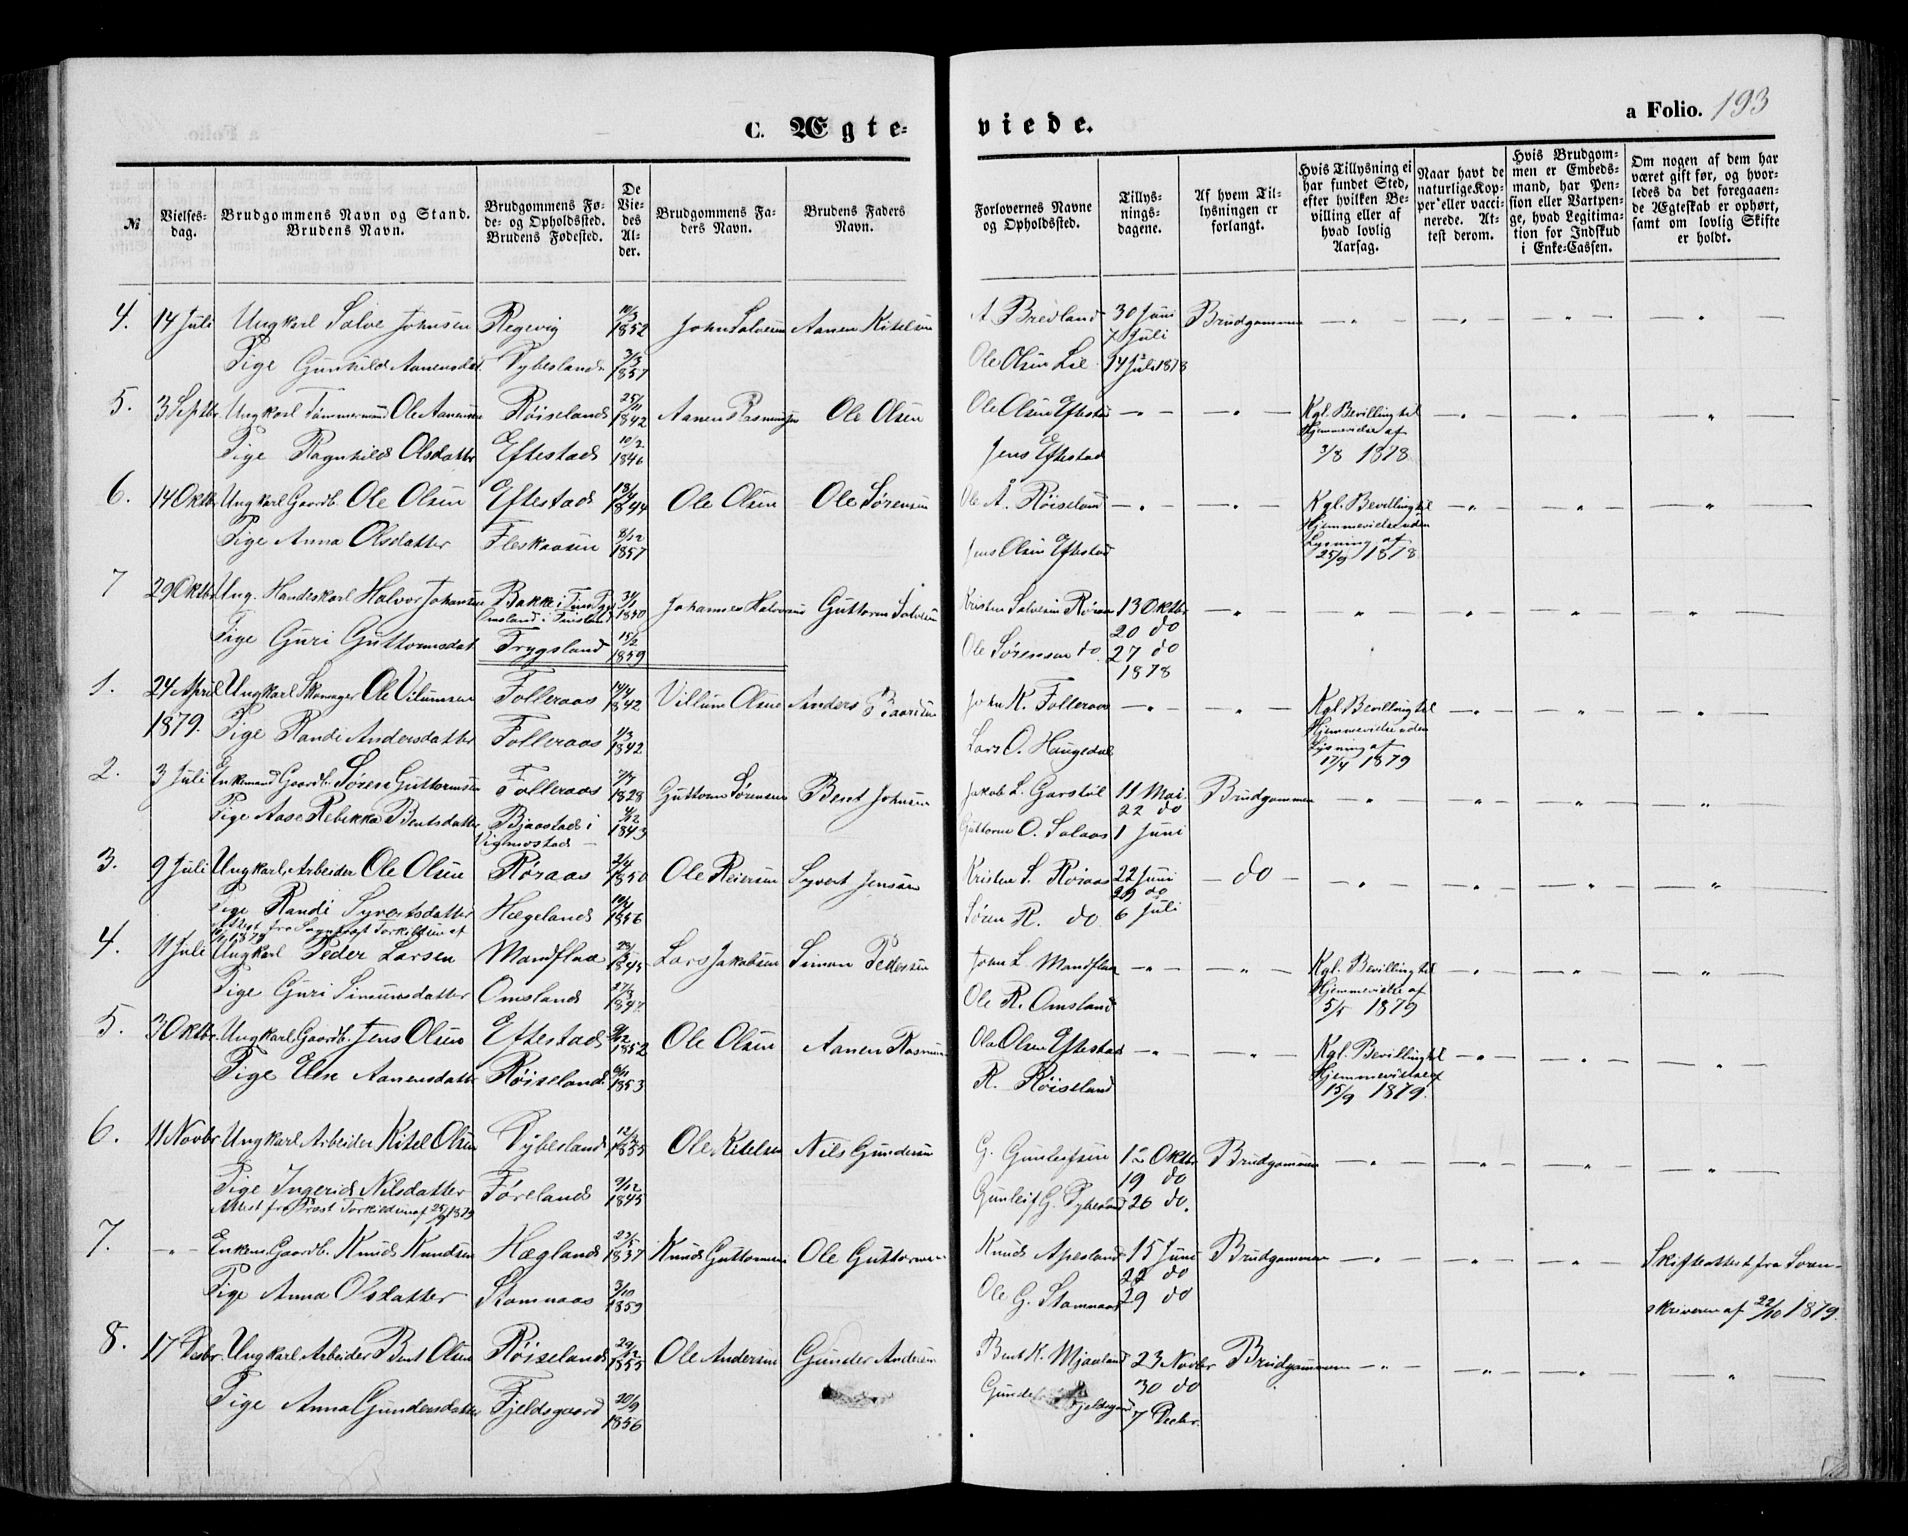 C. Ægte-
viede.
a Folio. 193
№
Vielses-
dag.
Brudgommens Navn og Stand.
Brudens Navn.
Brudgommens Fø-
de- og Opholdssted.
Brudens Fødested.
De
Vie-
des
Al-
der.
Brudgommens Fa-
ders Navn.
Brudens Faders
Navn.
Forlovernes Navne
og Opholdssted.
Tillys-
nings-
dagene.
Af hvem Til-
lysningen er
forlangt.
Hvis Tillysning ei
har fundet Sted,
efter hvilken Be-
villing eller af
hvad lovlig
Aarsag.
Naar havt de
naturlige Kop-
per eller vacci-
nerede. At-
test derom.
Hvis Brudgom-
men er Embeds-
mand, har Pen-
sion eller Vartpen-
ge, hvad Legitima-
tion for Indskud
i Enke-Cassen.
Om nogen af dem har
været gift før, og hvor-
ledes da det foregaaen-
de Ægteskab er ophørt,
samt om lovlig Skifte
er holdt.
4. 14 Juli Ungkarl Salve Johnsen Regevig 10/3 1852 John Salvesen Aanen Kitelsen A. Bredland 30 Juni Brudgommen
7 Juli
Pige Gunhild Aanensdat Vybesland 3/3 1857 Ole Olsen Lie 14 Juli 1878
5. 3 Septbr. Ungkarl Tømmermand Ole Aanensen Røiseland 25/11 1842 Aanen Rasmusen Ole Olsen Ole Olsen Eftestad Kgl. Bevilling til
Hjemmevielse af
Pige Ragnhild Olsdatter Eftestad 10/2 1846 Jens Eftestad 3/8 1878
6. 14 Oktbr. Ungkarl Gaardb. Ole Olsen Eftestad 18/4 1844 Ole Olsen Ole Sørensen Ole A. Røiseland Kgl. Bevilling til
Hjemmevielse uden
Lysning af
Pige Anna Olsdatter Fleskaasen 8/12 1857 Jens Olsen Eftestad 25/9 1878
7 29 Oktbr. Ung. Handelskarl Halvor Johansen Bakke i Finsl. 1850 Johannes Halvorsen Guttorm Salvesen Kristen Salvesen Røraas 13 Oktbr
20 do
Pige Guri Guttormsdat Trygsland 15/2 1859 Ole Sørensen do. 27 do
1878
1. 24 April Ungkarl Skomager Ole Vilumsen Folleraas 14/4 1842 Villum Olsen Anders Baardsen John K. Folleraas Kgl. Bevilling til
Hjemmevielse uden
Lysning af
1879. Pige Randi Andersdatter Folleraas 1/3 1842 Lars O. Haugedal 17/4 1879
2. 3 Juli Enkemand Gaardb. Søren Guttormsen Folleraas 1828 Guttorm Sørensen Bent Johnsen Jakob L. Garstøl 11 Mai Brudgommen
22 do
Pige Aase Rebekka Bentsdatter Bjaastad i 4/12 1843 Guttorm O. Solaas 1 Juni
Vigmostad
3. 9 Juli Ungkarl, Arbeider Ole Olsen Røraas 2/4 1850 Ole Reiersen Syvert Jensen Kristen S. Røraas 22 Juni do
29 do
Pige Randi Syvertsdatter Hægeland 1856 Søren R. do 6 Juli
Attest fra Sognepræst Torkildsen af
1879
4. 11 Juli Ungkarl Peder Larsen Mandflaa 23/3 1845 Lars Jakobsen Simon Pedersen John L. Mandflaa Kgl. Bevilling til
Hjemmevielse af
Pige Guri Simonsdatter Omsland 27/8 1847 Ole R. Omsland 5/5 1879
5. 3 Oktbr. Ungkarl Gaardb. Jens Olsen Eftestad 1852 Ole Olsen Aanen Rasmusen Ole Olsen Eftestad Kgl. Bevilling til
Hjemmevielse af
Pige Else Aanensdatter Røiseland 1853 R. Røiseland 15/9 1879.
6. 11 Novbr. Ungkarl Arbeider Kitel Olsen Vybesland 12/3 1855 Ole Kitelsen Nils Gundersen G. Gunleifsen 12 Oktbr Brudgommen
19 do
Pige Ingerid Nilsdatter Føreland 9/12 1845 Gunleif G. Vybesland 26 do.
Attest fra Præst Torkildsen af 25/9 1879
7. Enkem. Gaardb. Knud Knudsen Hægland 23/5 1837 Knud Guttormsen Ole Guttormsen Knud Apesland 15 Juni Brudgommen Skifteattest fra Soren-
22 do
Pige Anna Olsdatter Stamnaas 3/10 1859 Ole G. Stamnaas 29 do skriveren af 22/10 1879.
8. 17 Decbr. Ungkarl Arbeider Bent Olsen Røiseland 29/12 1855 Ole Andersen Gunder Andersen Bent K. Mjaaland 23 Novbr Brudgommen
30 do
Pige Anna Gundersdatter Fjeldsgaard 20/9 1856 Gunder Fjeldsgaard 7 Decbr.